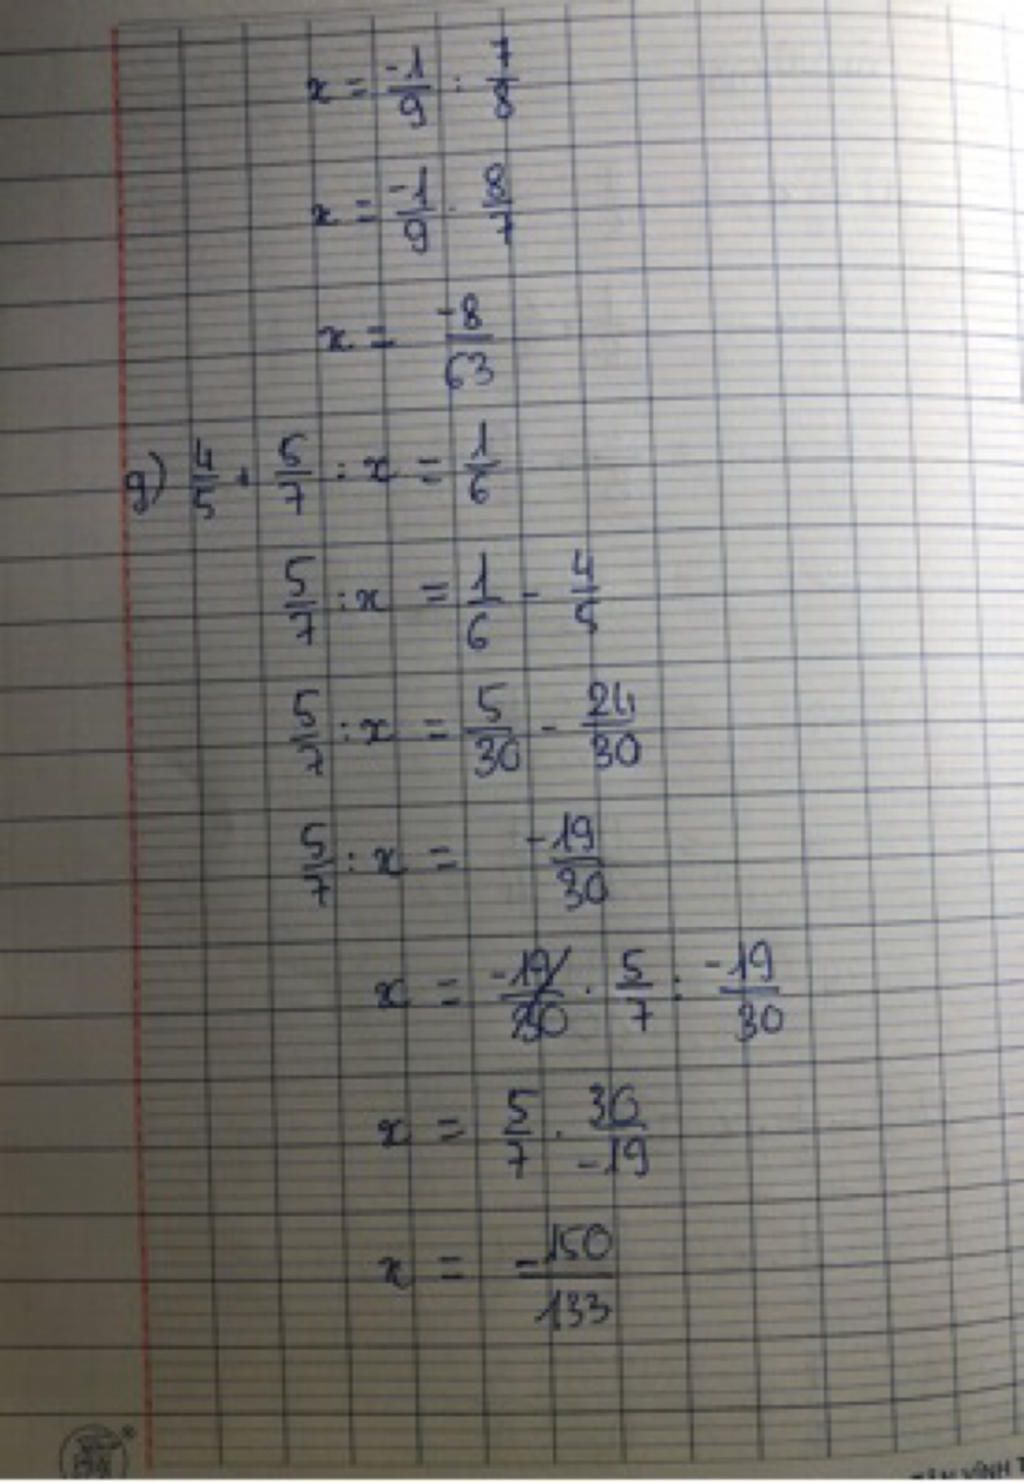 x = -1/9 : 7/8
x = -1/9 . 8/7
x = -8/63
g) 4/5 + 5/7 : x = 1/6
5/7 : x = 1/6 - 4/5
5/7 : x = 5/30 - 24/30
5/7 : x = -19/30
x = -19/30 . 5/7 : -19/30
x = 5/7 . 30/-19
x = -150/133